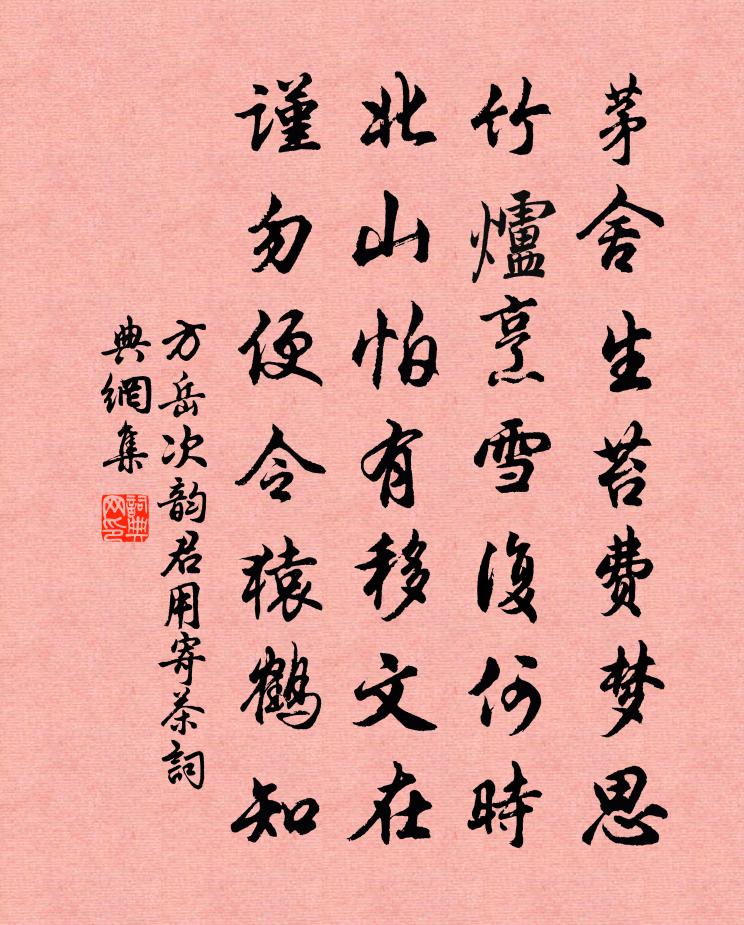 茅舍生苔费梦思
竹爐烹雪復何時
北山怕有移文在
謹勿便令猿鶴知
方岳次韵君用寄茶詞
典網集
詞典
网印